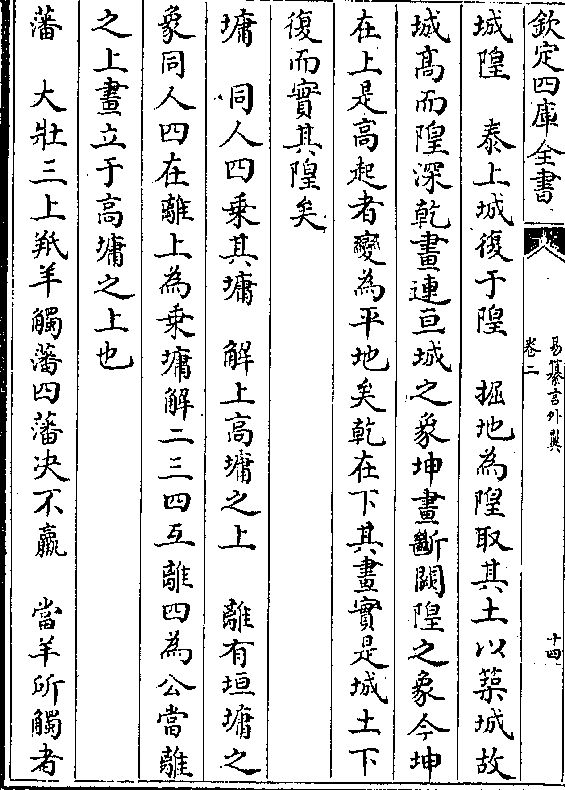 欽定四庫全書
易纂言外翼
卷二
十四
城隍　泰上城復于隍　掘地為隍取其土以築城故
城髙而隍深乾畫連亘城之象坤畫斷闕隍之象今坤
在上是高起者變為平地矣乾在下其畫實是城土下
復而實其隍矣
墉　同人四乗其墉　解上高墉之上　離有垣墉之
象同人四在離上為乗墉解二三四互離四為公當離
之上畫立于高墉之上也
藩　大壯三上羝羊觸藩四藩决不羸　當羊所觸者